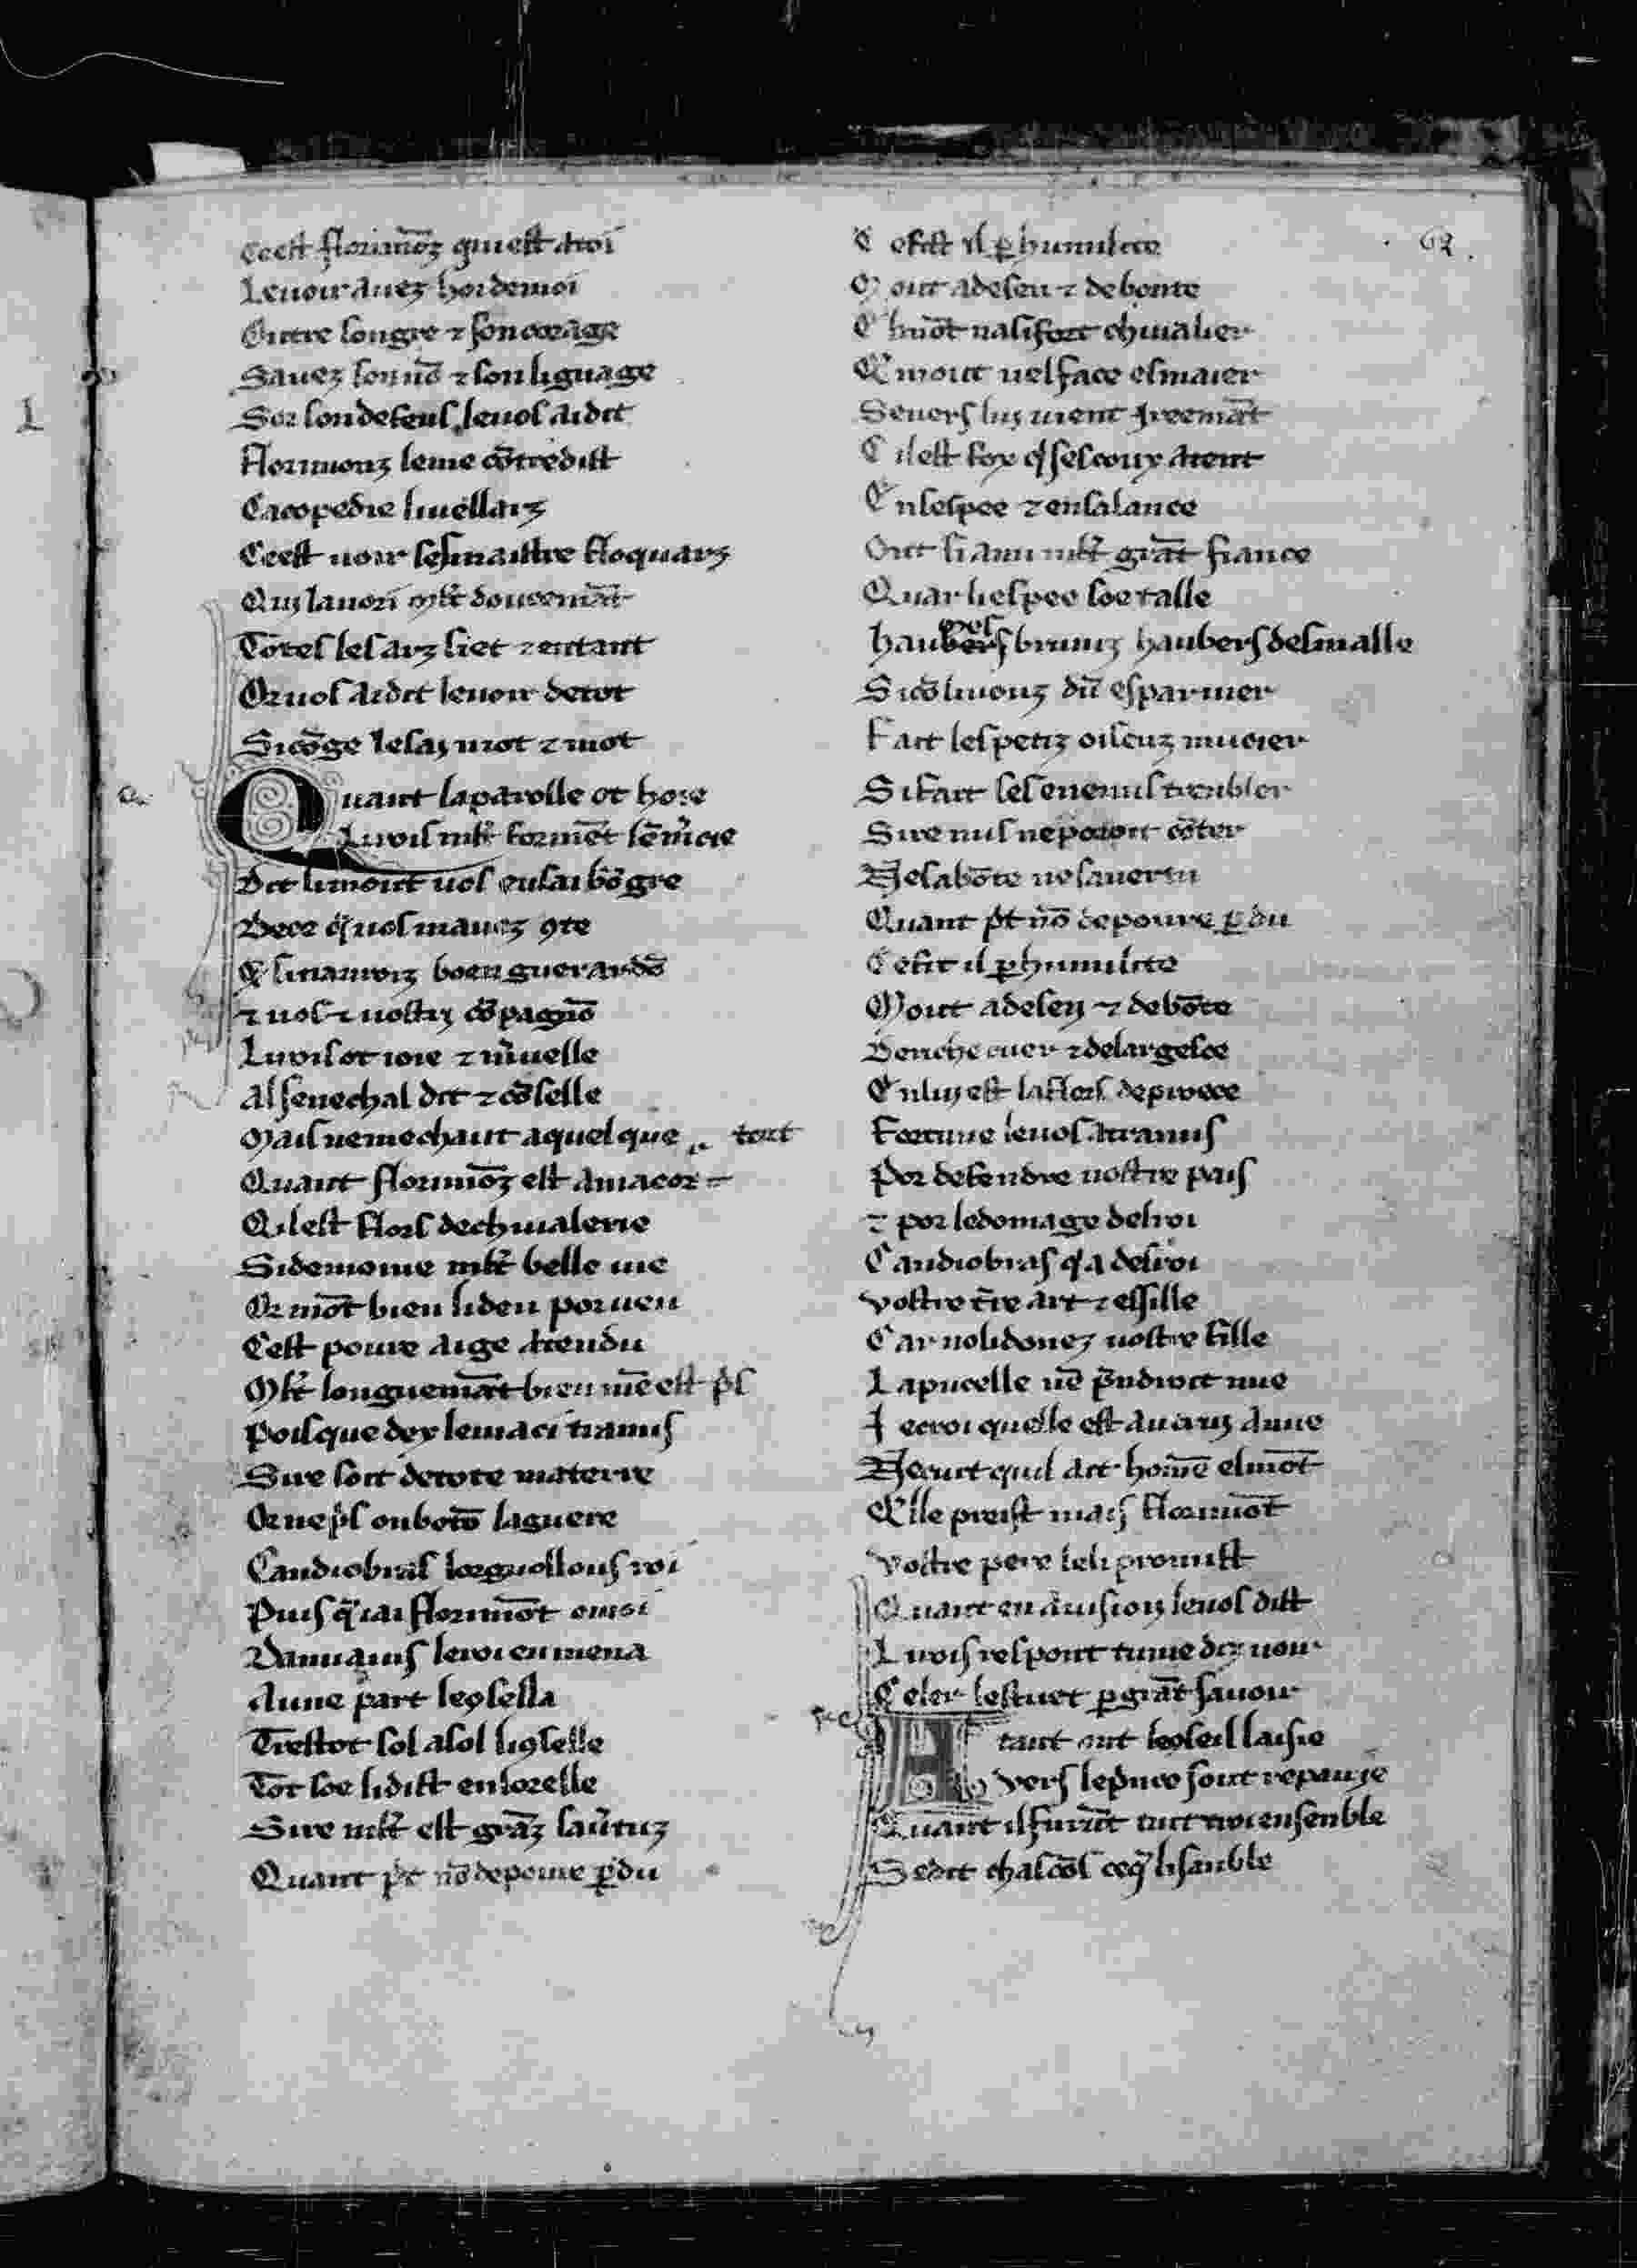 Ceest florimõz qui est a roi
Le uoir auez hoi de moi
Outre son gre ⁊ son corage
Sauez son nõ ⁊ son lignage
Sor son defens le uos ai dit
Florimonz le me cõtredist
Cacopedie li uellarz
Ceest uoir ses maistre floquarz
Qui la nori mlt' doucemãt
Totes les arz siet ⁊ entant
Or uos ai dit le uoir de tot
Si cõge le sai mot ⁊ mot
Quant la parolle ot hoie
Li rois mlt' formẽt lẽ m'cie
Dit li mout uos en sai bõ gre
De ce q' uos mauez 9te
⁊ uos ⁊ uostre cõpagnõ
Li rois ot ioie ⁊ m'uelle
Al senechal dit ⁊ cõselle
Mais ne me chaut a quel que tort
Quant florimõz est a ma cort
Qi lest flors de chiualerie
Si demoine mlt' belle uie
Or mõt bien li deu porueu
Cest poure ai ge atendu
Mlt' longuemãt bien mẽ est p's
Pois que dex le ma ci tramis
Sire soit de tote ma terre
Or ne p's un botõ la guere
Candiobras lorguollous roi
Puis q' iai florimõt o moi
Damians le roi en mena
A une part le 9sella
Trestot sol a sol li 9selle
Tot soe li dist en lorelle
Sire mlt' est grãz sa u'tuz
Quant p't nõ de poure p̱du
62
C e fist il p̱ humilite
M out a de sen ⁊ de bonte
E l mõt na si fort chiualier
Q mout nel face esmaier
Se uers lui uient ireemãt
C il est fox q' ses coux atent
E n lespee ⁊ en sa lance
Ont si anui mlt' grãt fiance
Quar li espee soe talle
mes
haubers bruniz haubers desmalle
Si cõ li uonz dũ esparuier
Fait les petiz oiseuz mucier
Si fait ses enemis trenbler
Sire nus ne poroit cõter
Ne sa bõte ne sa uertu
Quant p't nõ de poure p̱du
Ce fit il p̱ humilite
Mout a de sen ⁊ de bõte
De riche cuer ⁊ de largesce
En lui est la flors de proece
Fortune le uos a tramis
Por defendre uostre pais
⁊ por le domage del roi
Candiobras q' a desroi
Vostre t're art ⁊ essille
Car no li donez uostre fille
La pucelle nẽ p̃ndroit mie
Ie croi quelle est auariz amie
Ne cuit quil ait home el mõt
Elle preist mais florimõt
Vostre pere le li promist
Quant en auision le uos dist
Li rois respont tu me diz uoir
Celer lestuet p̱ grãt sauoir
Atant ont le 9seil laisie
Vers le p̃nce sont repairie
Quant il furãt tuit troi ensenble
Se dit chascõs ce q' li sanble